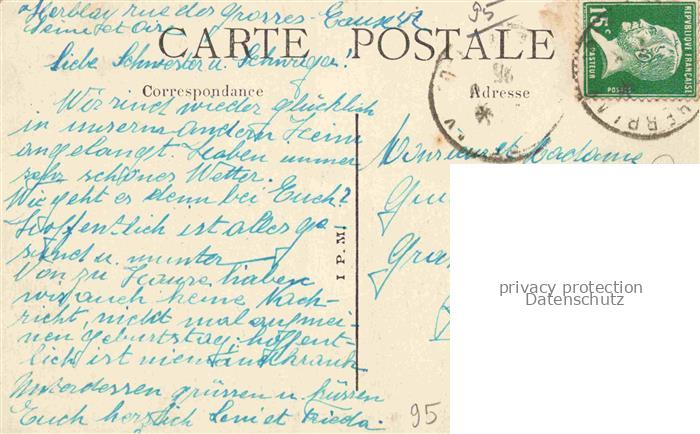 Herblay rue des Grosses-Eaux 42
Seine et Oise
95
CARTE POSTALE
Liebe Schwester u. Schwager!
Correspondance
Adresse
RÉPUBLIQUE FRANÇAISE
15c
PASTEUR
POSTES
Wir sind wieder glücklich
in unserm andern Heim
angelangt. Haben immer
sehr schönes Wetter.
Wie geht es denn bei Euch?
Hoffentlich ist alles ge
sund u. munter
Von zu Hause haben
wir auch keine Nach-
richt, nicht mal auf mei-
nen Geburtstag; hoffent
lich ist niemand krank
Unterdessen grüssen u. küssen
Euch herzlich Leni et Frieda.
I P. M.
Monsieur et Madame
privacy protection
Datenschutz
95